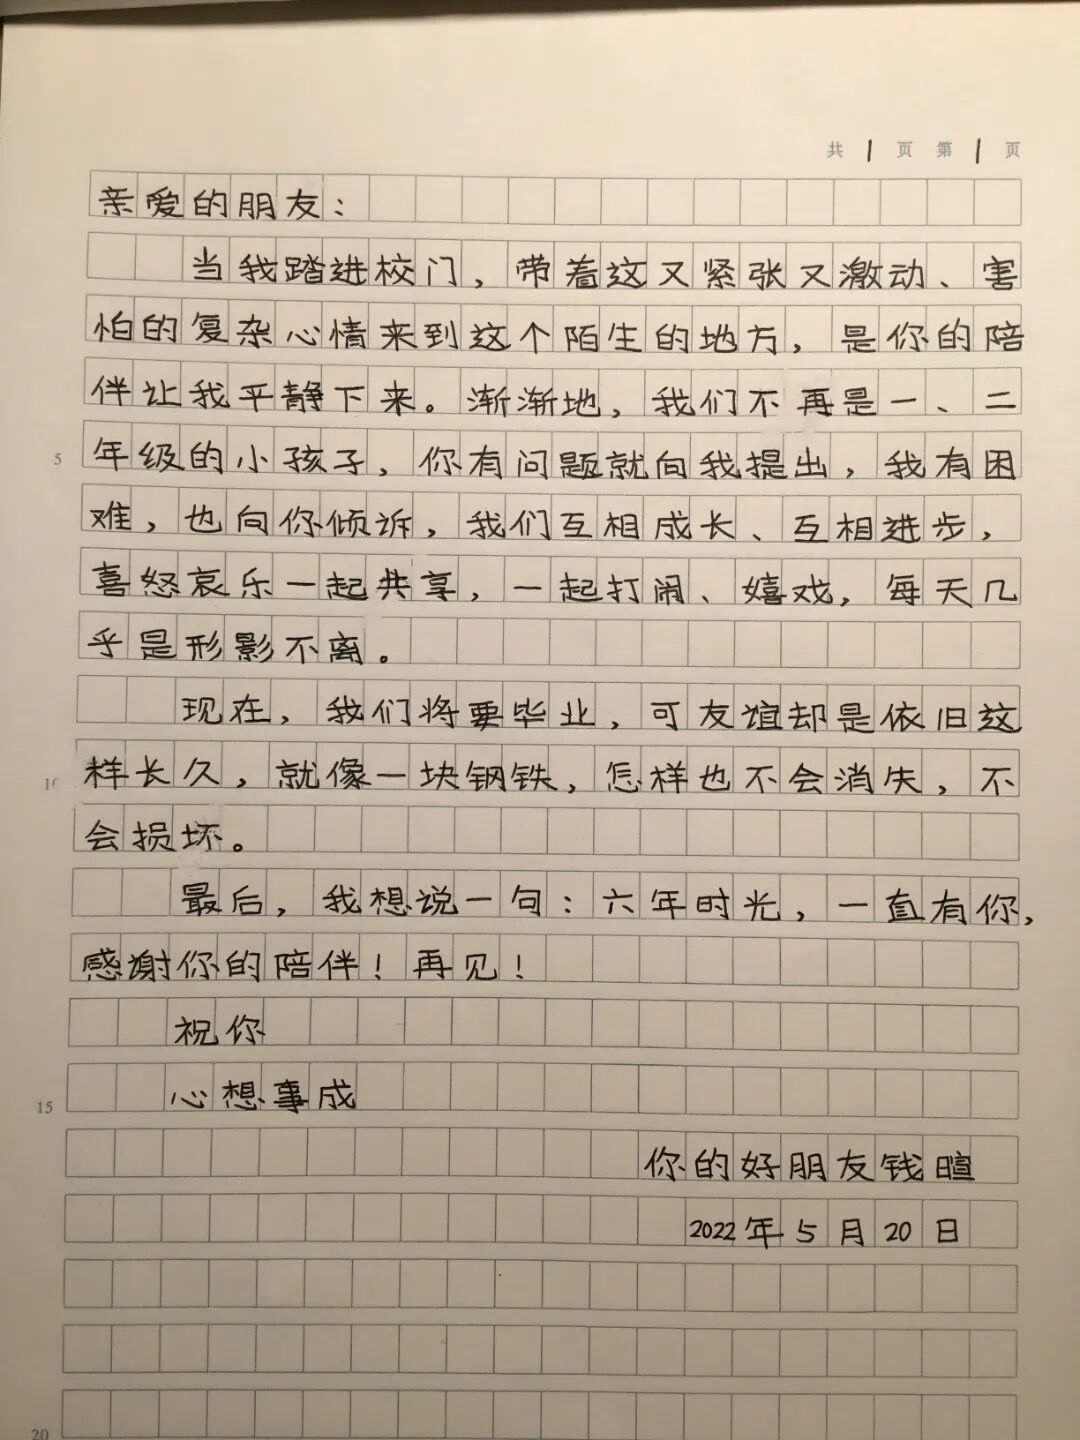 共 1 页 第 1 页
亲爱的朋友：
当我踏进校门，带着这又紧张又激动、害
怕的复杂心情来到这个陌生的地方，是你的陪
伴让我平静下来。渐渐地，我们不再是一、二
5 年级的小孩子，你有问题就向我提出，我有困
难，也向你倾诉，我们互相成长、互相进步，
喜怒哀乐一起共享，一起打闹、嬉戏，每天几
乎是形影不离。
现在，我们将要毕业，可友谊却是依旧这
10 样长久，就像一块钢铁，怎样也不会消失，不
会损坏。
最后，我想说一句：六年时光，一直有你，
感谢你的陪伴！再见！
祝你
15 心想事成
你的好朋友钱暄
2022年5月20日
20